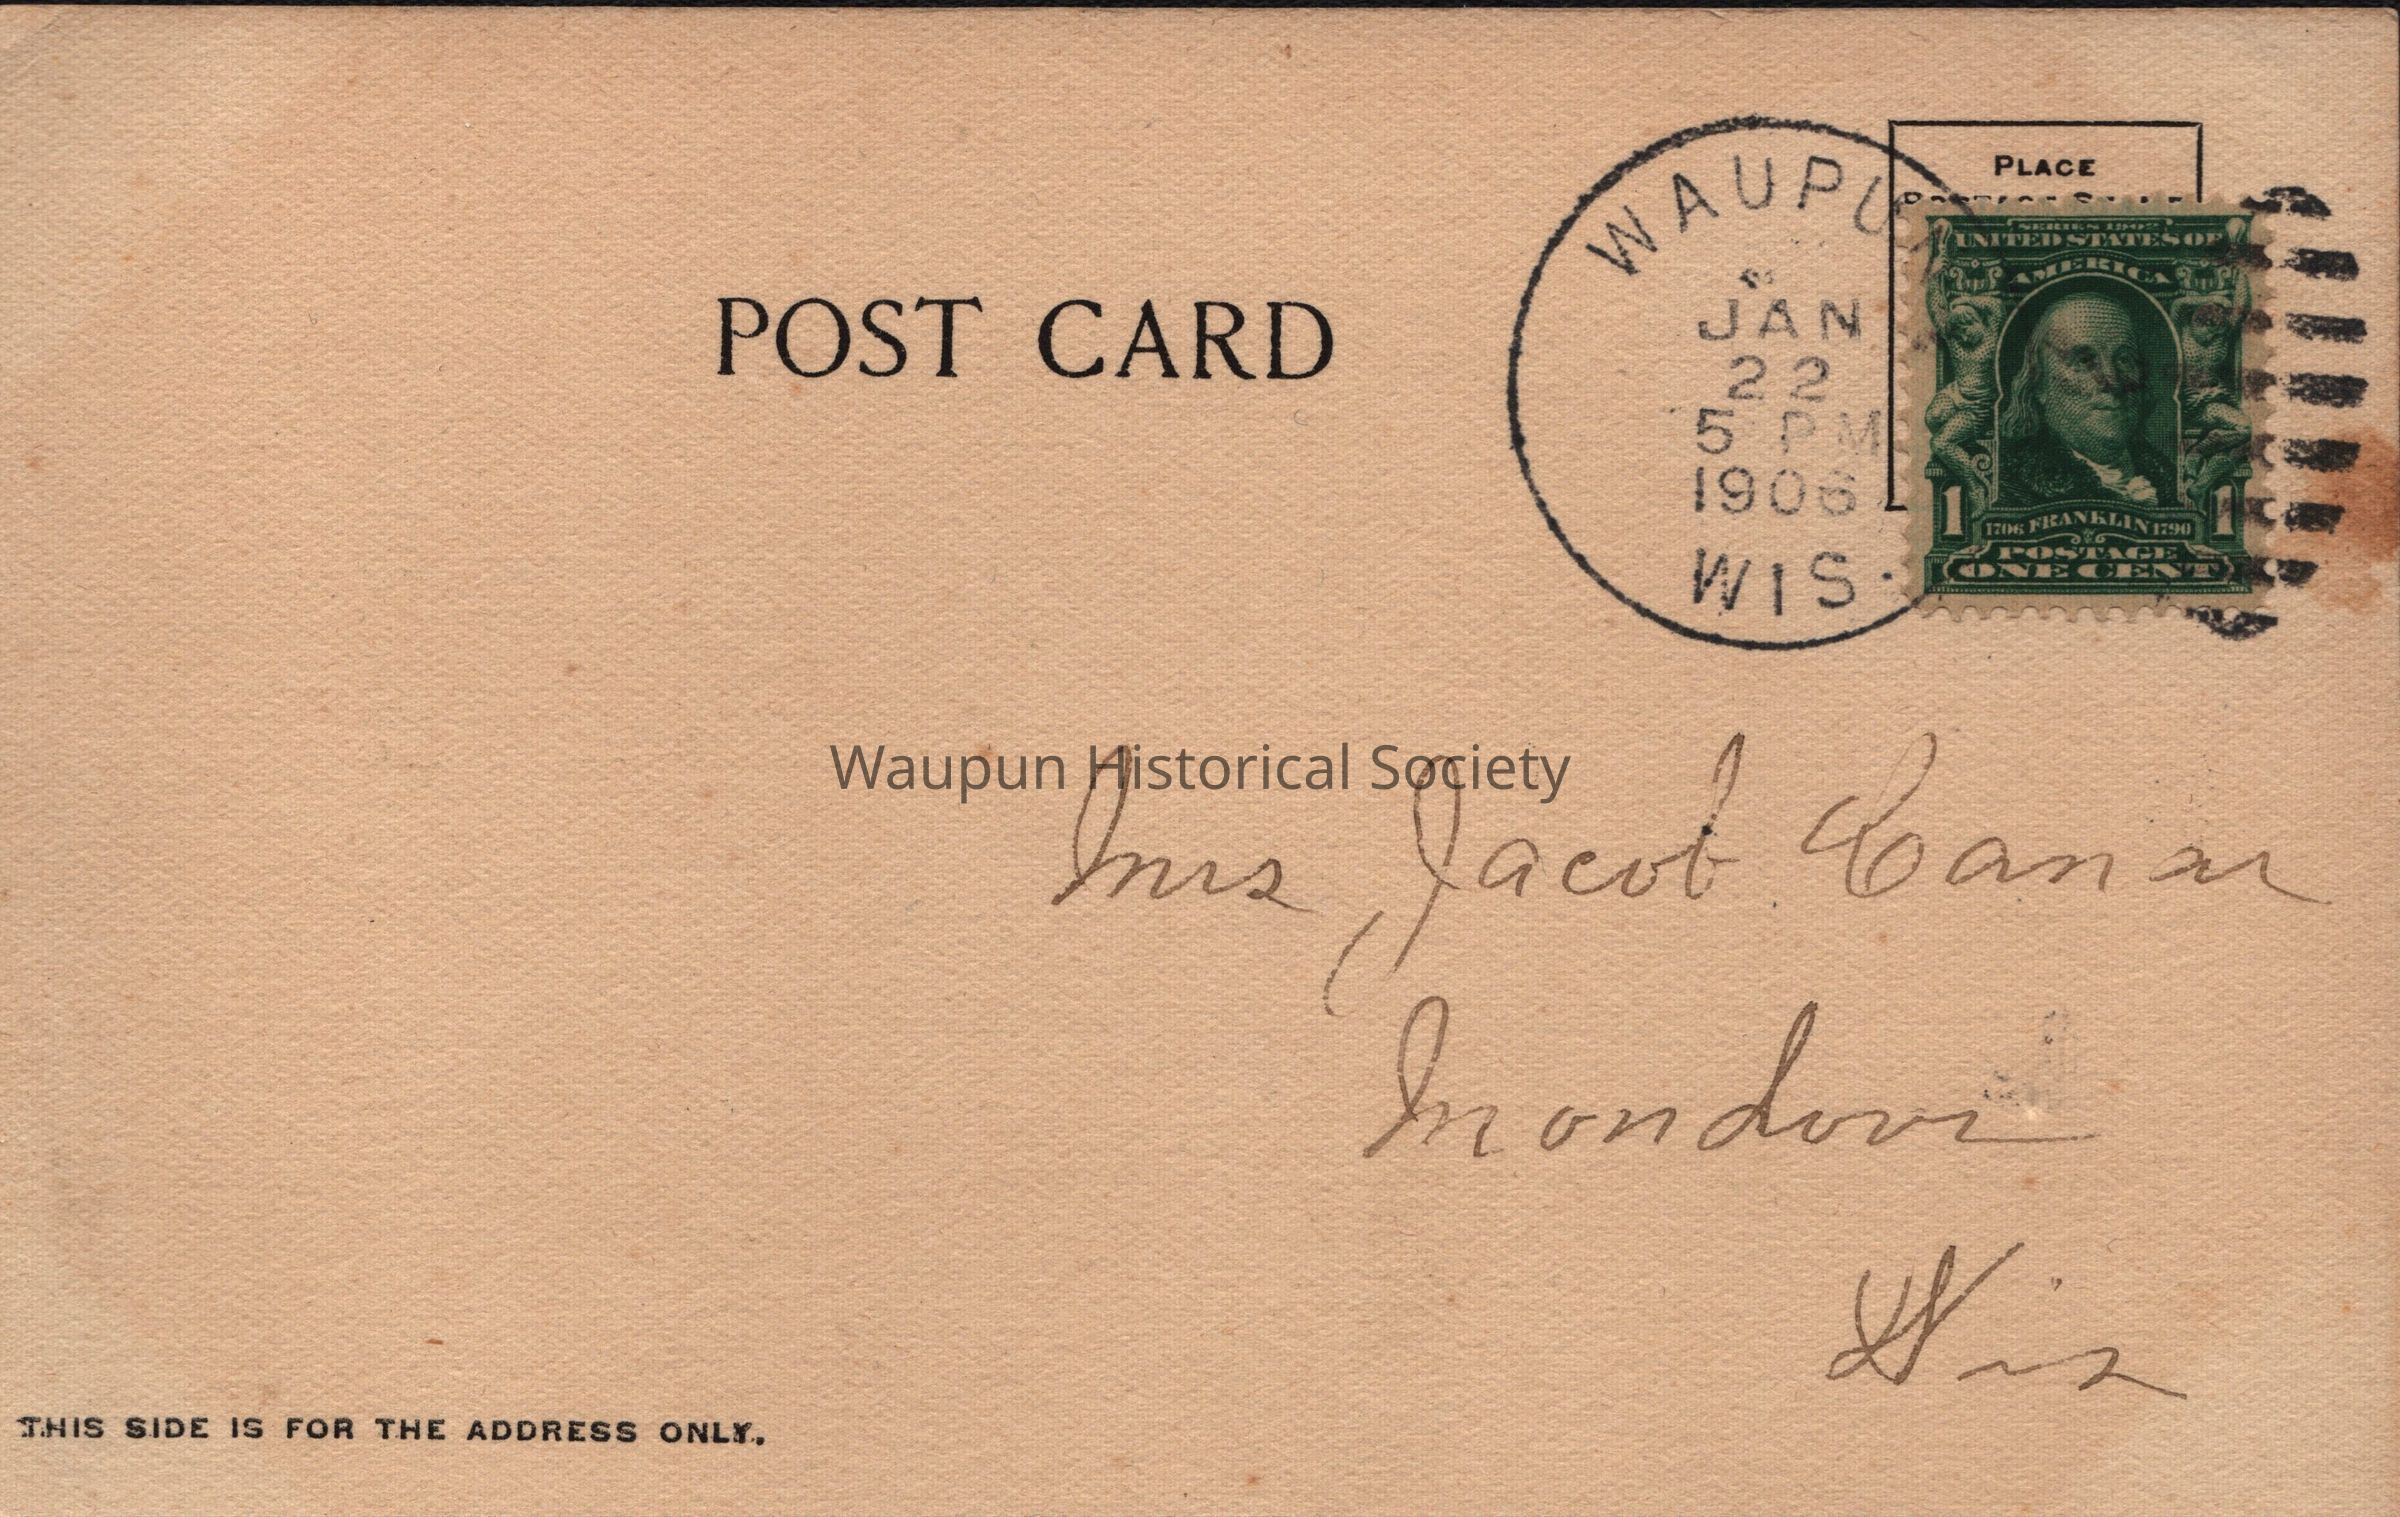 PLACE
POSTAGE STAMP
WAUPUN
JAN
22
5 PM
1906
WIS.
SERIES 1902
UNITED STATES OF
AMERICA
1 1706 FRANKLIN 1790 1
POSTAGE
ONE CENT
POST CARD
Waupun Historical Society
Mrs Jacob Canar
Mondovi
Wis
THIS SIDE IS FOR THE ADDRESS ONLY.